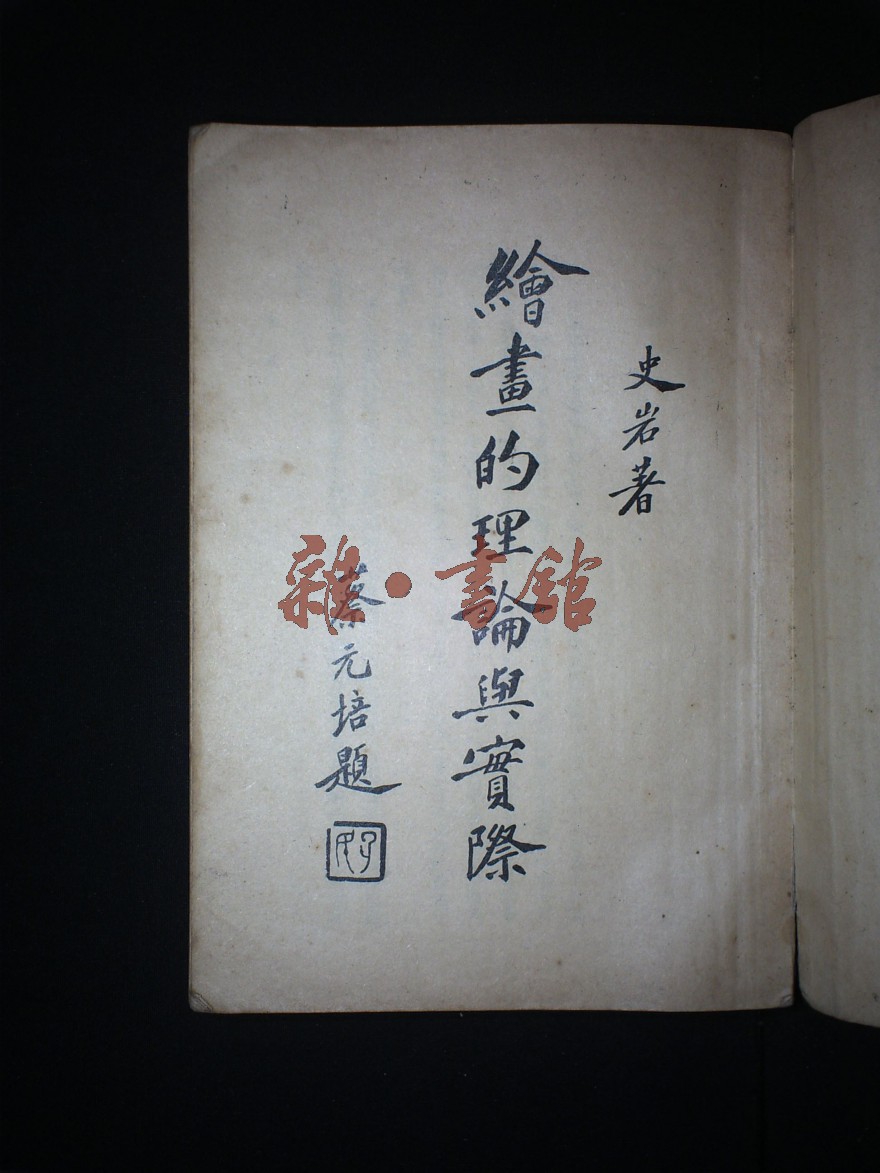 史岩著
繪畫的理論與實際
蔡元培題
雜·書館